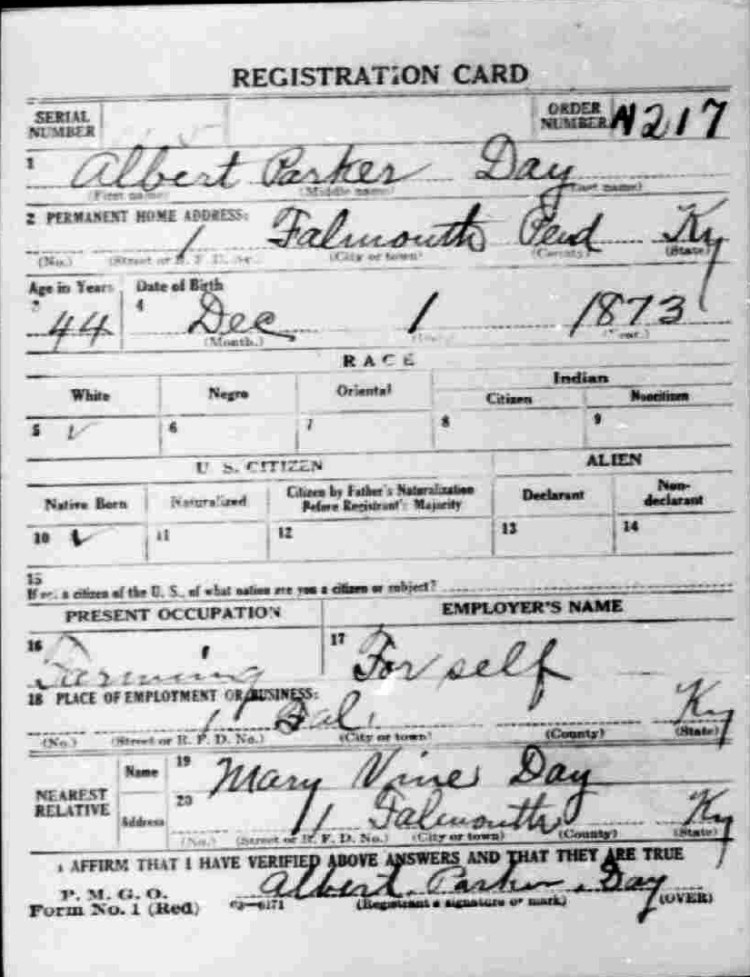 REGISTRATION CARD
SERIAL NUMBER ORDER NUMBER N217
1 Albert Parker Day
(First name) (Middle name) (Last name)
2 PERMANENT HOME ADDRESS:
1 Falmouth Pend Ky
(No.) (Street or R. F. D. No.) (City or town) (County) (State)
Age in Years Date of Birth
3 44 4 Dec 1 1873
(Month.) (Day.) (Year.)
RACE
White Negro Oriental Indian
Citizen Noncitizen
5 ✓ 6 7 8 9
U. S. CITIZEN ALIEN
Native Born Naturalized Citizen by Father's Naturalization Before Registrant's Majority Declarant Non-declarant
10 ✓ 11 12 13 14
15
If not a citizen of the U. S., of what nation are you a citizen or subject?
PRESENT OCCUPATION EMPLOYER'S NAME
16 Farming 17 For self
18 PLACE OF EMPLOYMENT OR BUSINESS:
1 Fal, Ky
(No.) (Street or R. F. D. No.) (City or town) (County) (State)
NEAREST RELATIVE Name 19 Mary Vine Day
Address 20 11 Falmouth Ky
(No.) (Street or R. F. D. No.) (City or town) (County) (State)
I AFFIRM THAT I HAVE VERIFIED ABOVE ANSWERS AND THAT THEY ARE TRUE
Albert Parker Day
P. M. G. O.
Form No. 1 (Red) 03—6171 (Registrant's signature or mark) (OVER)